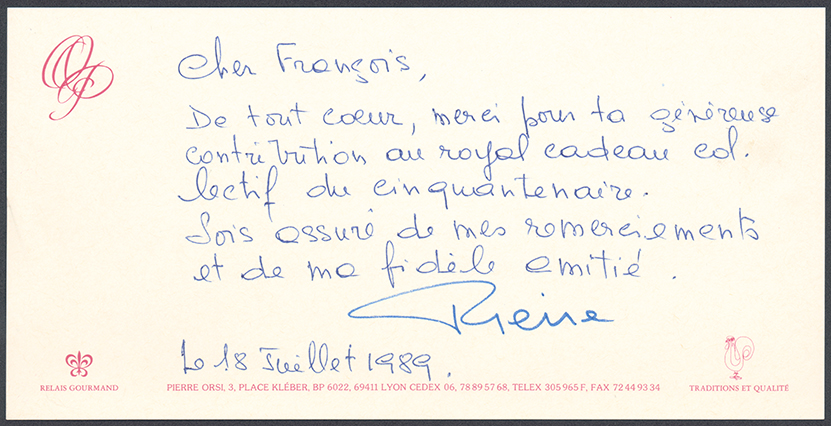 OP
Cher François,
De tout cœur, merci pour ta généreuse
contribution au royal cadeau col.
lectif du cinquantenaire.
Sois assuré de mes remerciements
et de ma fidèle amitié.
Pierre
Le 18 Juillet 1989.
RELAIS GOURMAND
PIERRE ORSI, 3, PLACE KLÉBER, BP 6022, 69411 LYON CEDEX 06, 78 89 57 68, TELEX 305 965 F, FAX 72 44 93 34
TRADITIONS ET QUALITÉ